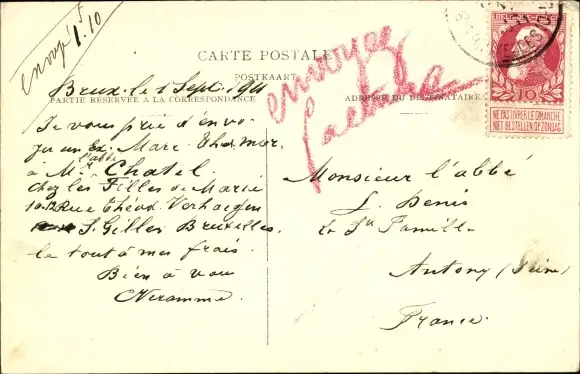 envoyé 5
1.10
CARTE POSTALE
POSTKAART
PARTIE RÉSERVÉE A LA CORRESPONDANCE
ADRESSE DU DESTINATAIRE
envoyez
facture
BELGIQUE
10
NE PAS LIVRER LE DIMANCHE
NIET BESTELLEN OP ZONDAG
Brux. le 1 Sept. 1911
Je vous prie d'envo-
yer un Ex. Marc
à Mr l'abbé Chatel
chez les Filles de Marie
10-12 Rue Théod. Verhaegen
S. Gilles Bruxelles.
le tout à mes frais.
Bien à vou
Monsieur l'abbé
L. Denis
Ste Famille
Antony (Seine)
France.